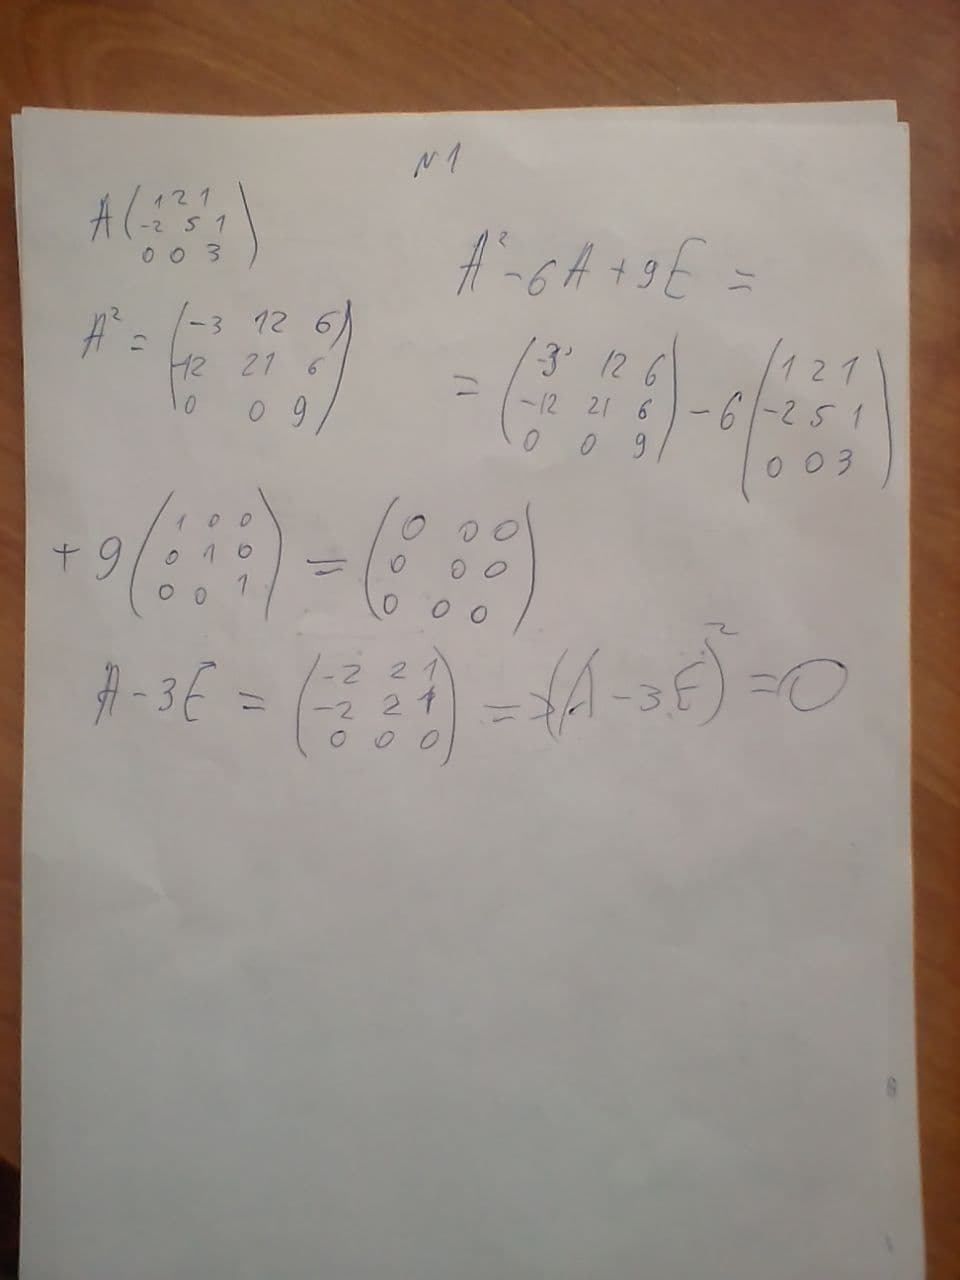 №1
A ( 1 2 1
-2 5 1
0 0 3 )
A² - 6A + 9E =
A² = ( -3 12 6
-12 21 6
0 0 9 )
= ( -3 12 6
-12 21 6
0 0 9 ) - 6 ( 1 2 1
-2 5 1
0 0 3 )
+ 9 ( 1 0 0
0 1 0
0 0 1 ) = ( 0 0 0
0 0 0
0 0 0 )
A - 3E = ( -2 2 1
-2 2 1
0 0 0 ) => (A - 3E)² = 0